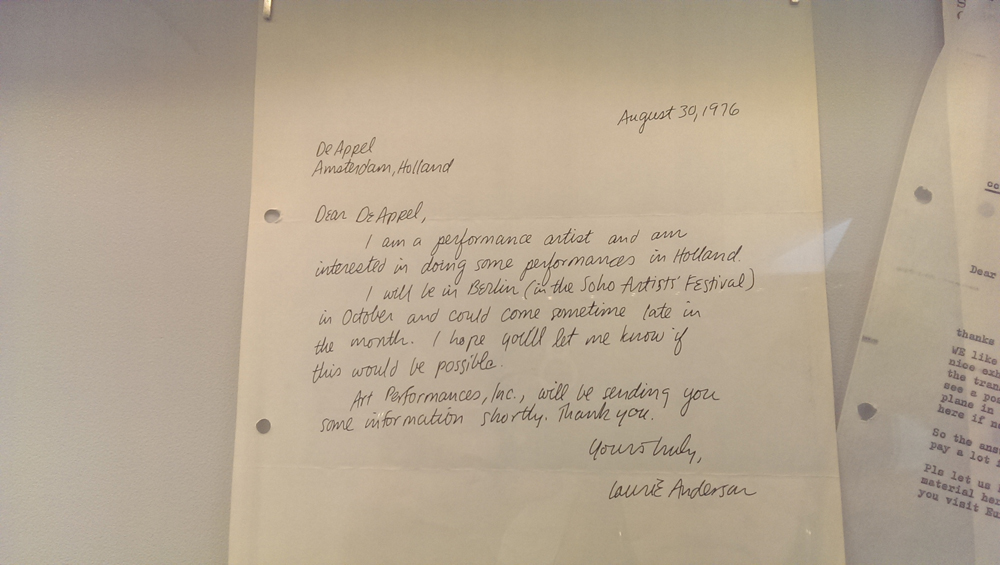 August 30, 1976
De Appel
Amsterdam, Holland
Dear De Appel,
I am a performance artist and am
interested in doing some performances in Holland.
I will be in Berlin (in the Soho Artists' Festival)
in October and could come sometime late in
the month. I hope you'll let me know if
this would be possible.
Art Performances, Inc., will be sending you
some information shortly. Thank you.
Yours truly,
Laurie Anderson
Dear
thanks
WE like
nice
the
see a
plane in
here if
So the
pay a lot
Pls let us
material
you visit